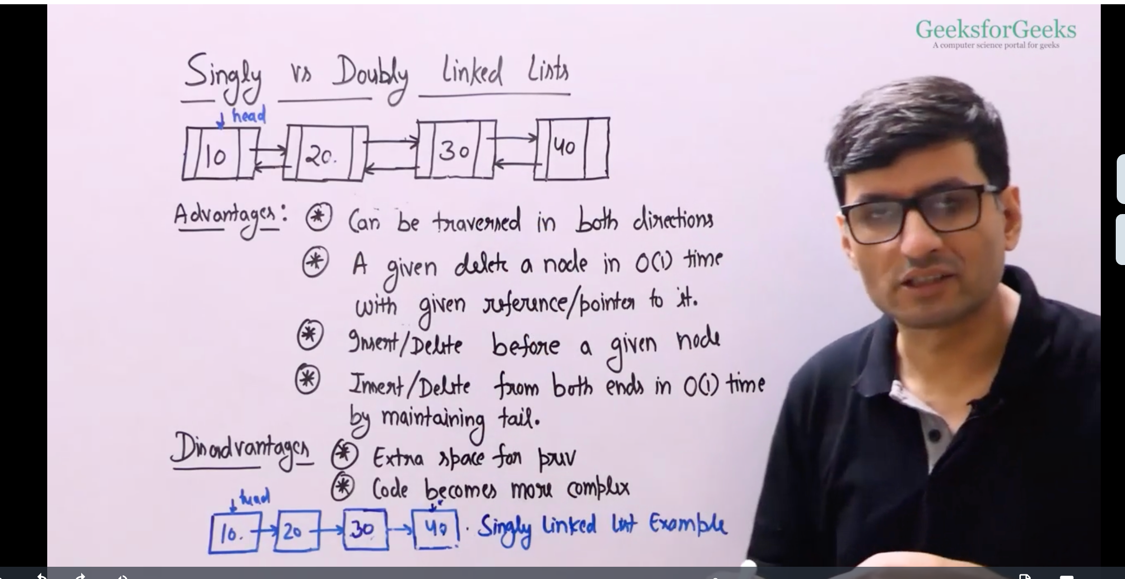 GeeksforGeeks
A computer science portal for geeks
Singly vs Doubly Linked Lists
head
10 20. 30 40
Advantages: * Can be traversed in both directions
* A given delete a node in O(1) time
with given reference/pointer to it.
* Insert/Delete before a given node
* Insert/Delete from both ends in O(1) time
by maintaining tail.
Disadvantages * Extra space for prev
* Code becomes more complex
head
10. 20 30 40 . Singly Linked List Example